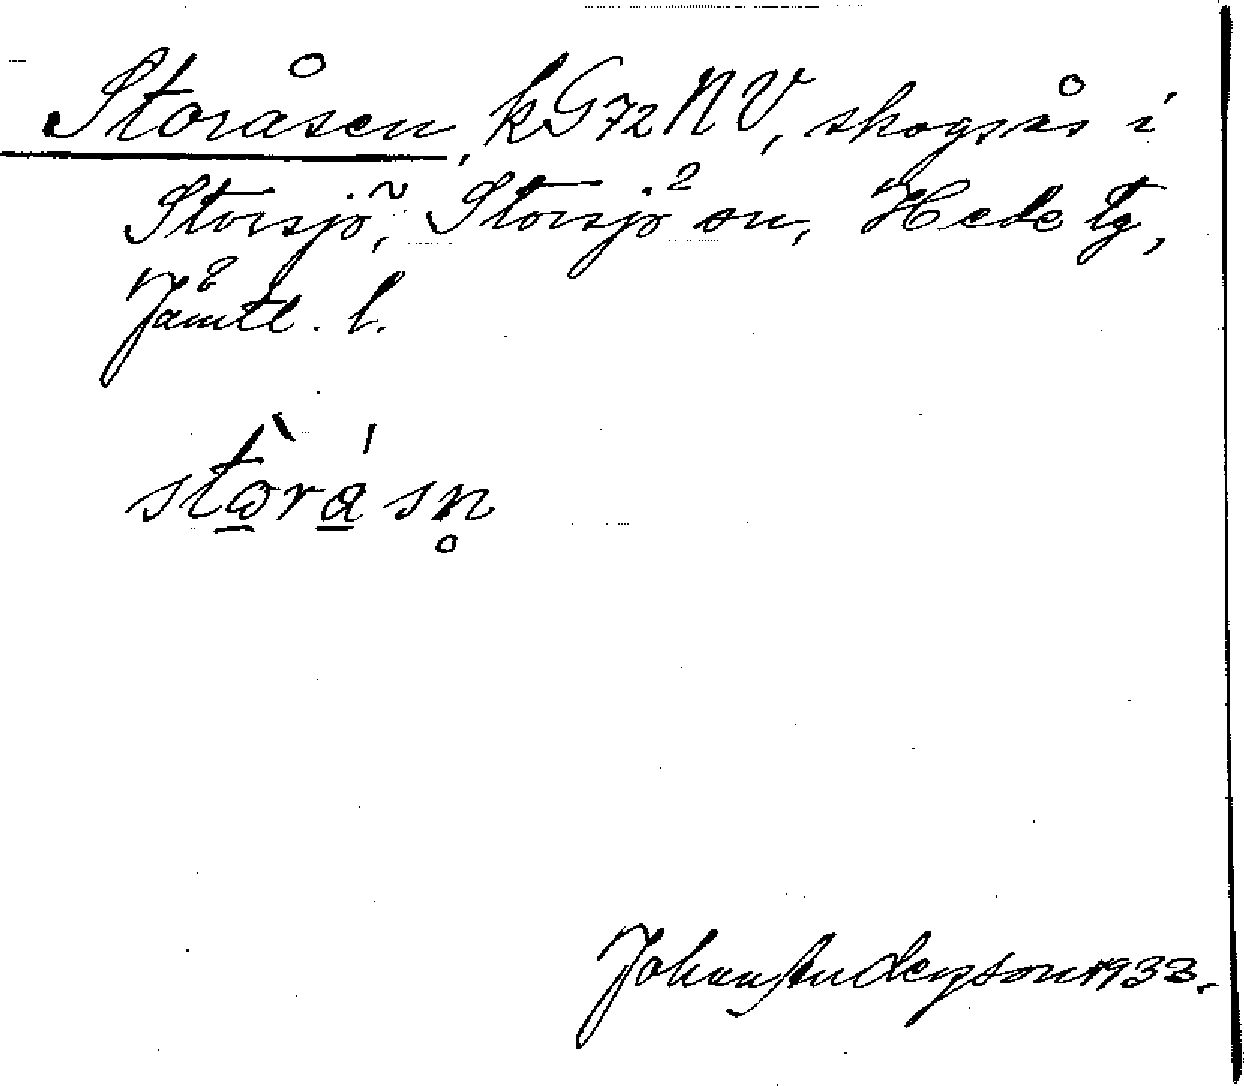 Storåsen, kG72NV, skogsås i
Storsjö, Storsjö sn, Hede tg,
Jämtl. l.
stòrásn̥
Johan Anderson 1933.